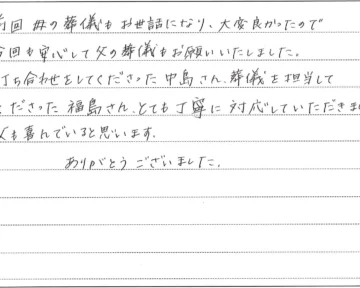 前回 母の葬儀もお世話になり、大変良かったので
今回も安心して父の葬儀もお願いいたしました。
打ち合わせをしてくださった中島さん、葬儀を担当して
くださった福島さん、とても丁寧に対応していただきま
父も喜んでいると思います。
ありがとうございました。